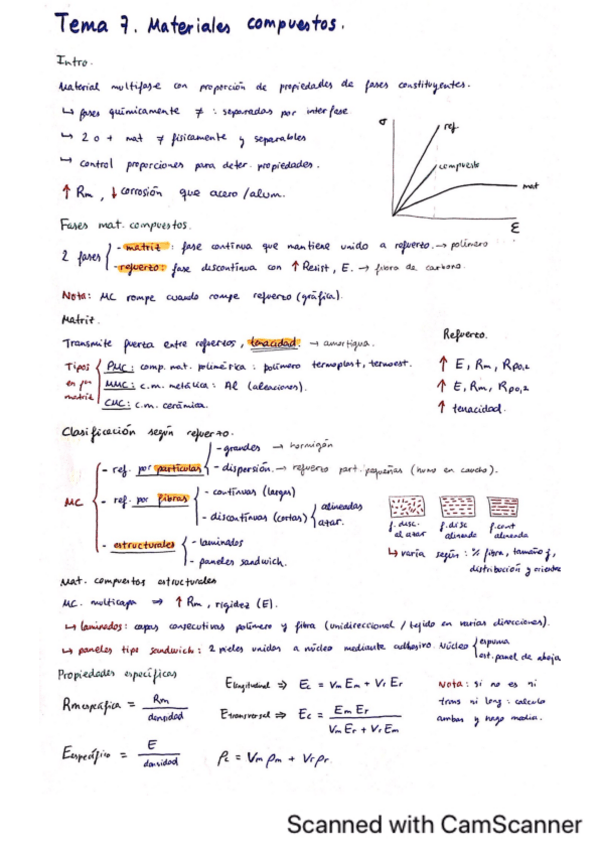 Tema 7. Materiales compuestos.
Intro.
Material multifase con proporción de propiedades de fases constituyentes.
↳ fases químicamente ≠ : separadas por interfase
↳ 2 o + mat ≠ físicamente y separables
↳ control proporciones para deter. propiedades.
↑ Rm, ↓ corrosión que acero/alum.
σ
ref.
compuesto
mat
ε
Fases mat. compuestos.
2 fases
- matriz : fase continua que mantiene unido a refuerzo. → polímero
- refuerzo: fase discontinua con ↑ Resist, E. → fibra de carbono.
Nota: MC rompe cuando rompe refuerzo (gráfica).
Matriz.
Transmite fuerza entre refuerzos, tenacidad. → amortigua.
Tipos en fun matriz
PMC: comp. mat. polimérica : polímero termoplast, termoest.
MMC: c.m. metálica : Al (aleaciones).
CMC: c.m. cerámica.
Refuerzo.
↑ E, Rm, Rp0,2
↑ E, Rm, Rp0,2
↑ tenacidad.
Clasificación según refuerzo.
MC
- ref. por partículas
- grandes → hormigón
- dispersión. → refuerzo part. pequeñas (humo en caucho).
- ref. por fibras
- continuas (largas)
- discontinuas (cortas)
alineadas
azar.
- estructurales
- laminados
- paneles sandwich.
f. disc. al azar
f. disc alineada
f. cont alineada
↳ varía según : % fibra, tamaño f, distribución y orienta
Mat. compuestos estructurales
MC. multicapa ⇒ ↑ Rm, rigidez (E).
↳ laminados: capas consecutivas polímero y fibra (unidireccional / tejido en varias direcciones).
↳ paneles tipo sandwich: 2 pieles unidas a núcleo mediante adhesivo. Núcleo
espuma
est. panel de abeja
Propiedades específicas
Rm específica = Rm / densidad
E específico = E / densidad
E longitudinal ⇒ Ec = Vm Em + Vr Er
E transversal ⇒ Ec = Em Er / Vm Er + Vr Em
ρc = Vm ρm + Vr ρr.
Nota: si no es ni
trans ni long : calculo
ambas y hago media.
Scanned with CamScanner